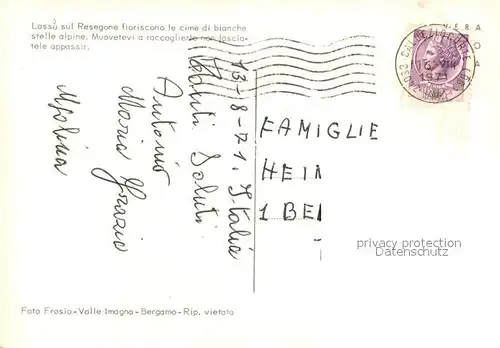 Lassù sul Resegone fioriscono le cime di bianche
stelle alpine. Muovetevi a raccoglierle non lascia-
tele appassir.
13-8-71. Italia
Tanti Saluti
Antonio
Maria Grazia
FAMIGLIE
HEIN
1 BEI
privacy protection
Datenschutz
Foto Frosio-Valle Imagna-Bergamo-Rip. vietata
16-VIII
1971